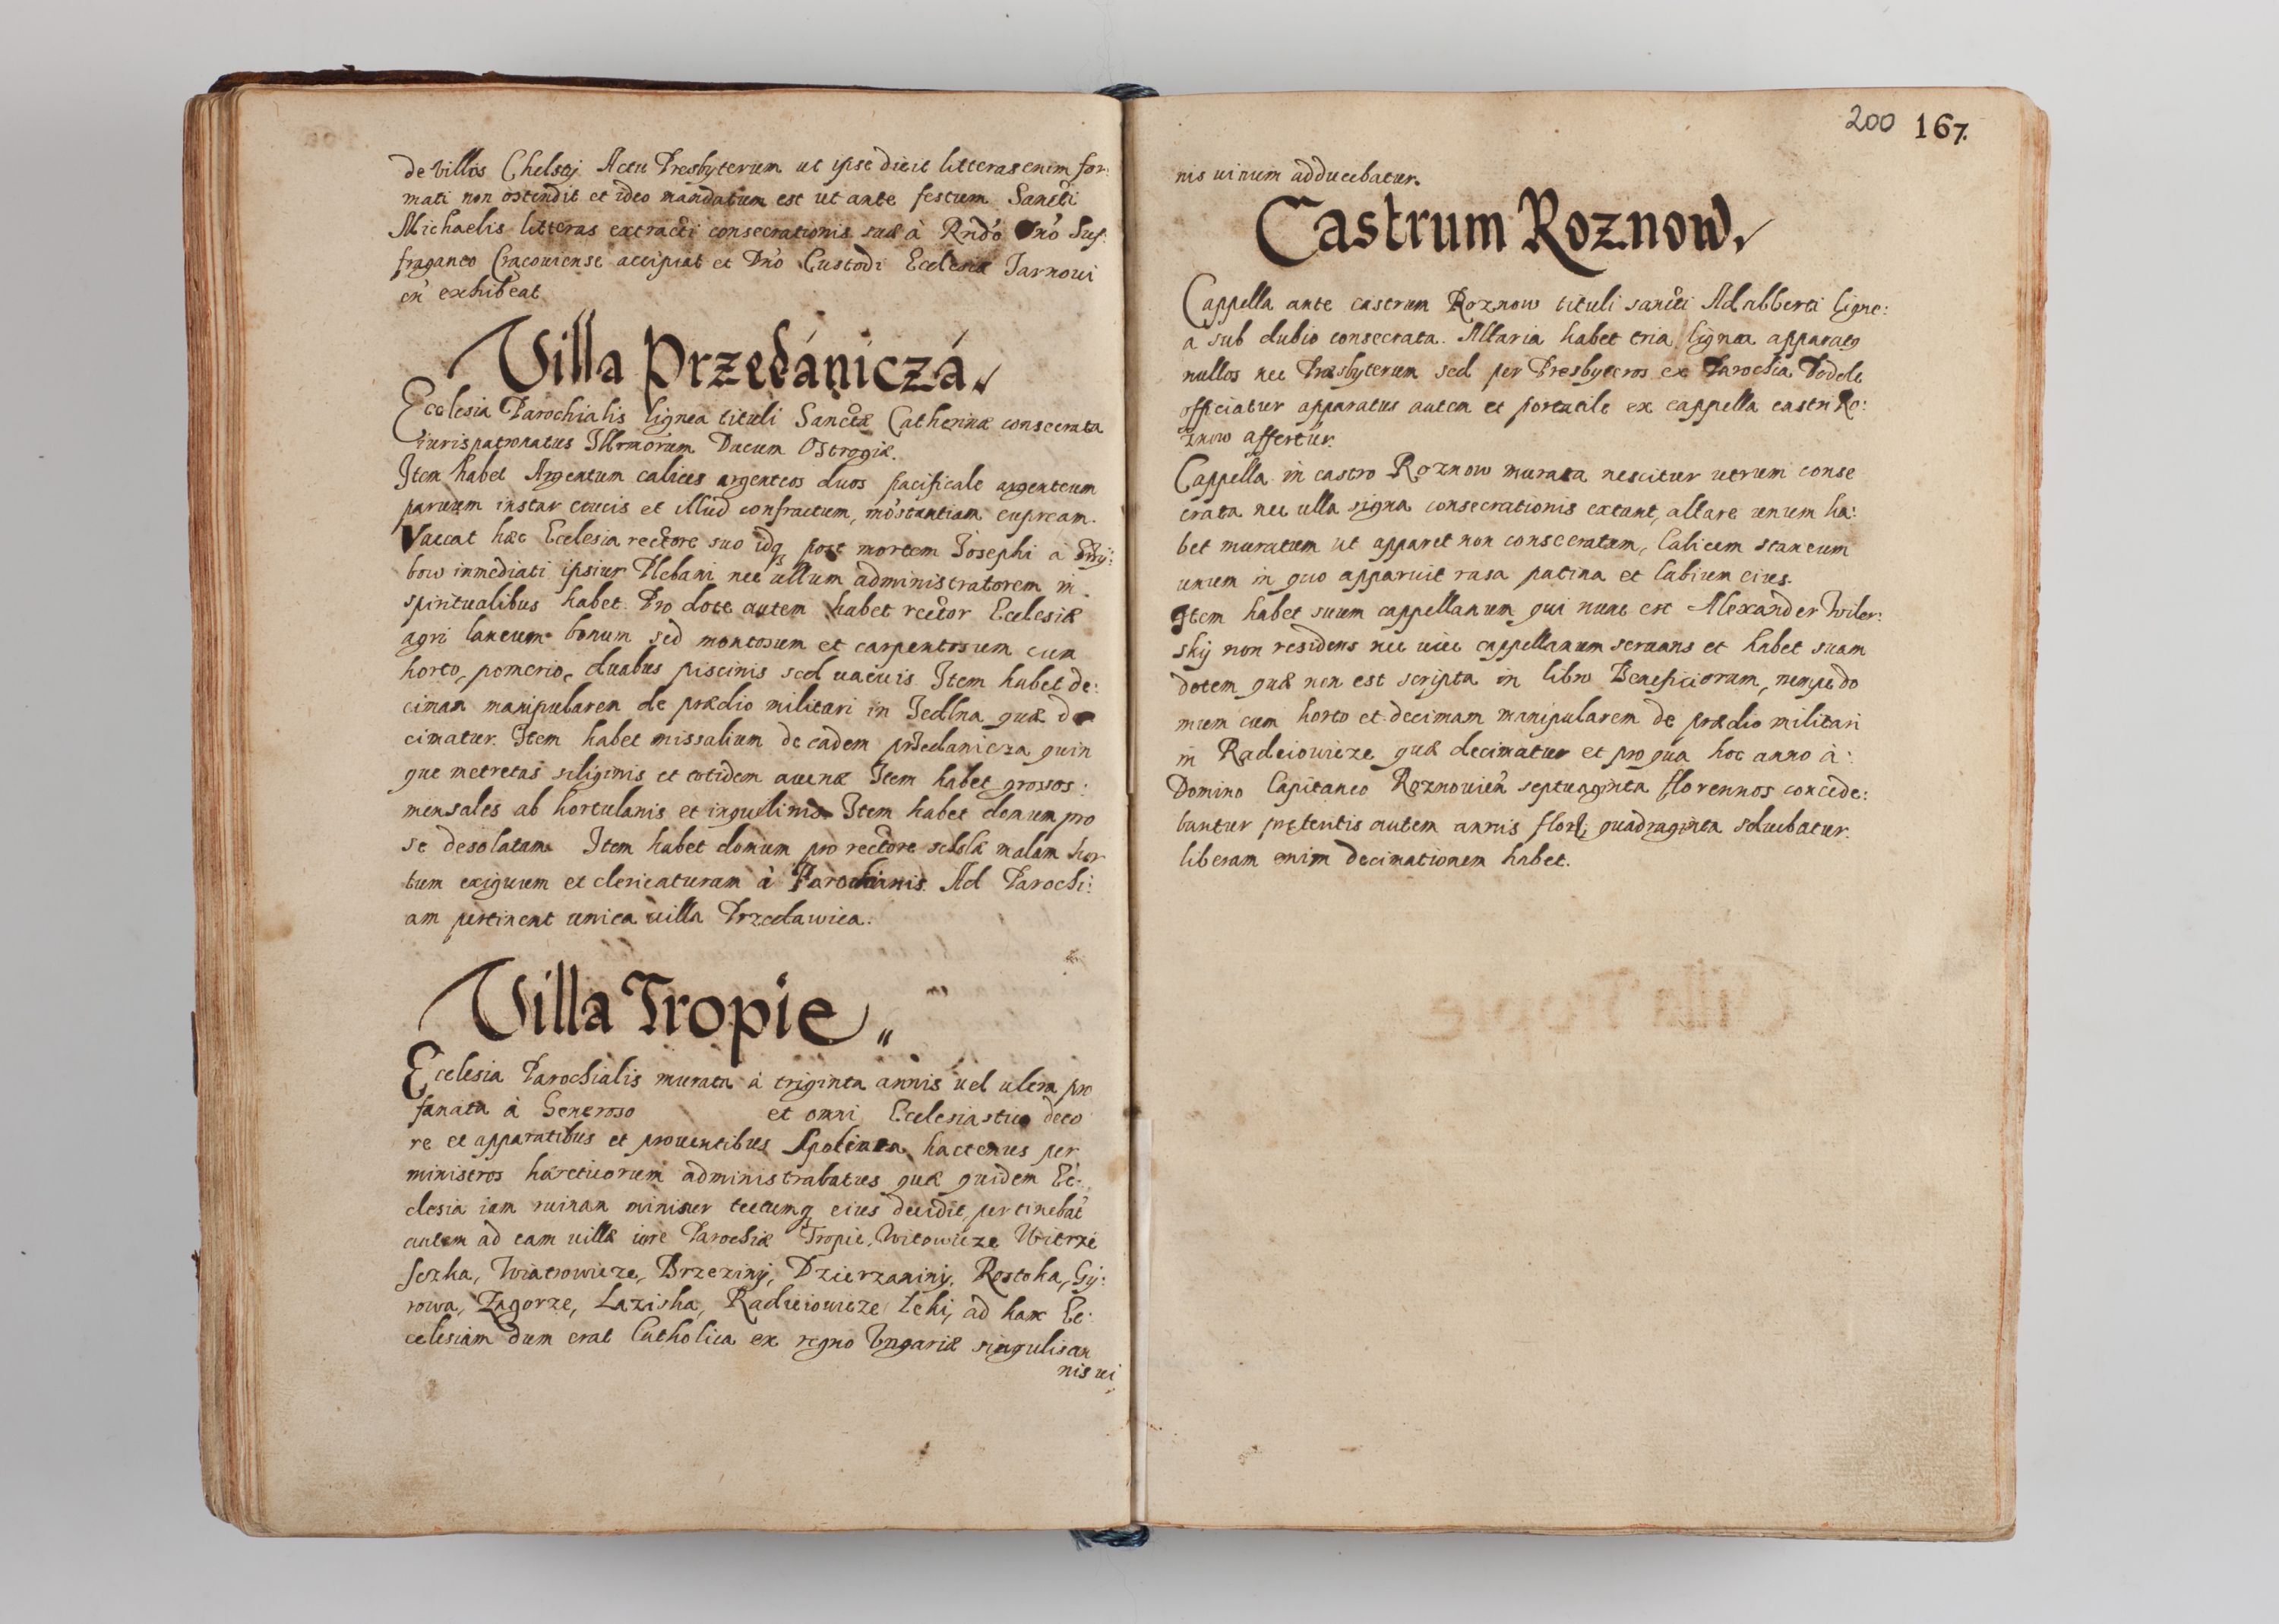 de villis Chelsty Actu Presbyterum ut ipse dicit litteras enim for:
mati non ostendit et ideo mandatum est ut ante festum Sancti
Michaelis litteras extracti consecrationis suæ à Rndo Dno Suf:
fraganeo Cracouiense accipiat et Dno Custodi Ecclesiæ Tarnoui
en exhibeat
Villa Przedániczá
Ecclesia Parochialis lignea tituli Sanctæ Catherinæ consecrata
iurispatronatus Illrmorum Ducum Ostrogiæ.
Item habet Argentum calices argenteos duos pacificale argenteum
paruum instar crucis et illud confractum, mostantiam cupream.
Vaccat hæc Ecclesia rectore suo idq post mortem Josephi à
bow inmediati ipsiur Plebani nec ullum administratorem in
spiritualibus habet. Pro dote autem habet rector Ecclesiæ
agri laneum bonum sed montosum et carpentosum cum
horto, pomerio, duabus piscinis sed uacuis. Item habet de:
ciman manipularem de prædio militari in Jedlna quæ de
cimatur. Item habet missalium de eadem przedanicza quin
que metretas siliginis et totidem auenæ Item habet grossos:
mensales ab hortulanis et inquilinis Item habet domum pro
se desolatam Item habet domum pro rectore scholæ malam hor
tum exiguum et clericaturam à Parochianis. Ad Parochi:
am pertinent unica uilla Przedawica.
Villa Tropie
Ecclesia Parochialis murata à triginta annis uel ultra pro
fanata à Generoso et omni Ecclesiastico deco
re et apparatibus et prouentibus Spoliata hactenus per
ministros hæreticorum administrabatur quæ quidem Ec:
clesia iam ruinam minatur tectumq eius decidit, pertinebat
autem ad eam uillæ iure Parochiæ Tropie, Witowicze Witrze
sczka, Wiatrowicze, Brzeziny, Dzierzaniny, Rostoka, Gy:
rowa, Zagorze, Laziska, Radiciowicze Leki, ad hanc Ec:
celesiam dum erat Catholica ex regno Vngariæ singulis an
nis ui
200 167.
nis uinum adducebatur.
Castrum Roznow
Cappella ante castrum Roznow tituli sancti Adalberti ligne:
a sub dubio consecrata. Altaria habet tria lignea apparatq
nullos nec Præsbyterum sed per Presbyteros ex Parochia Podole
officiatur apparatus autem et portatile ex cappella castri Ro:
znow affertur.
Cappella in castro Roznow murata nescitur utrum conse
crata nec ulla signa consecrationis extant, altare unum ha:
bet muratum ut apparet non consecratum, Calicem staneum
unum in quo apparuit rasa patina et labium eius.
Item habet suum cappellanum qui nunc est Alexander Wiler:
skij non residens nec uice cappellanum seruans et habet suam
dotem quæ non est scripta in libro Beneficiorum, nempe do
mum cum horto et decimam manipularem de prædio militari
in Radeiowicze quæ decimatur et pro qua hoc anno à:
Domino Capitaneo Roznouien septuaginta florennos concede:
bantur preteritis autem annis flor: quadraginta soluebatur.
liberam enim decimationem habet.